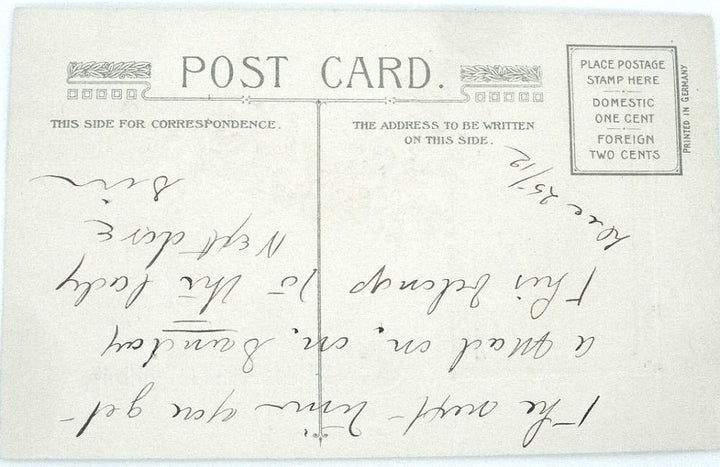 POST CARD.
THIS SIDE FOR CORRESPONDENCE.
THE ADDRESS TO BE WRITTEN
ON THIS SIDE.
PLACE POSTAGE
STAMP HERE
DOMESTIC
ONE CENT
FOREIGN
TWO CENTS
PRINTED IN GERMANY
The next time you get
a Mad on, on, Sunday
this belongs to the lady
Next dore
Dec 25/12